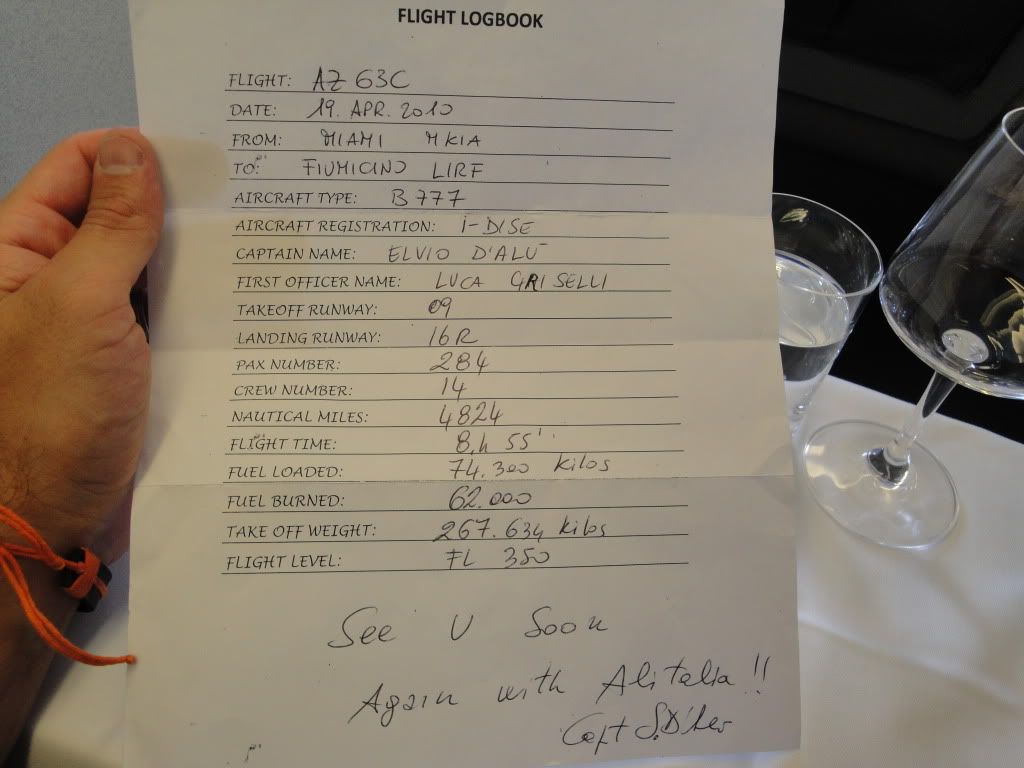 FLIGHT LOGBOOK
FLIGHT: AZ 63C
DATE: 19. APR. 2010
FROM: MIAMI MKIA
TO: FIUMICINO LIRF
AIRCRAFT TYPE: B777
AIRCRAFT REGISTRATION: I-DISE
CAPTAIN NAME: ELVIO D'ALÙ
FIRST OFFICER NAME: LUCA GRISELLI
TAKEOFF RUNWAY: 09
LANDING RUNWAY: 16R
PAX NUMBER: 284
CREW NUMBER: 14
NAUTICAL MILES: 4824
FLIGHT TIME: 8h 55'
FUEL LOADED: 74.300 kilos
FUEL BURNED: 62.000
TAKE OFF WEIGHT: 267.634 kilos
FLIGHT LEVEL: FL 350
See U Soon
Again with Alitalia!!
Capt